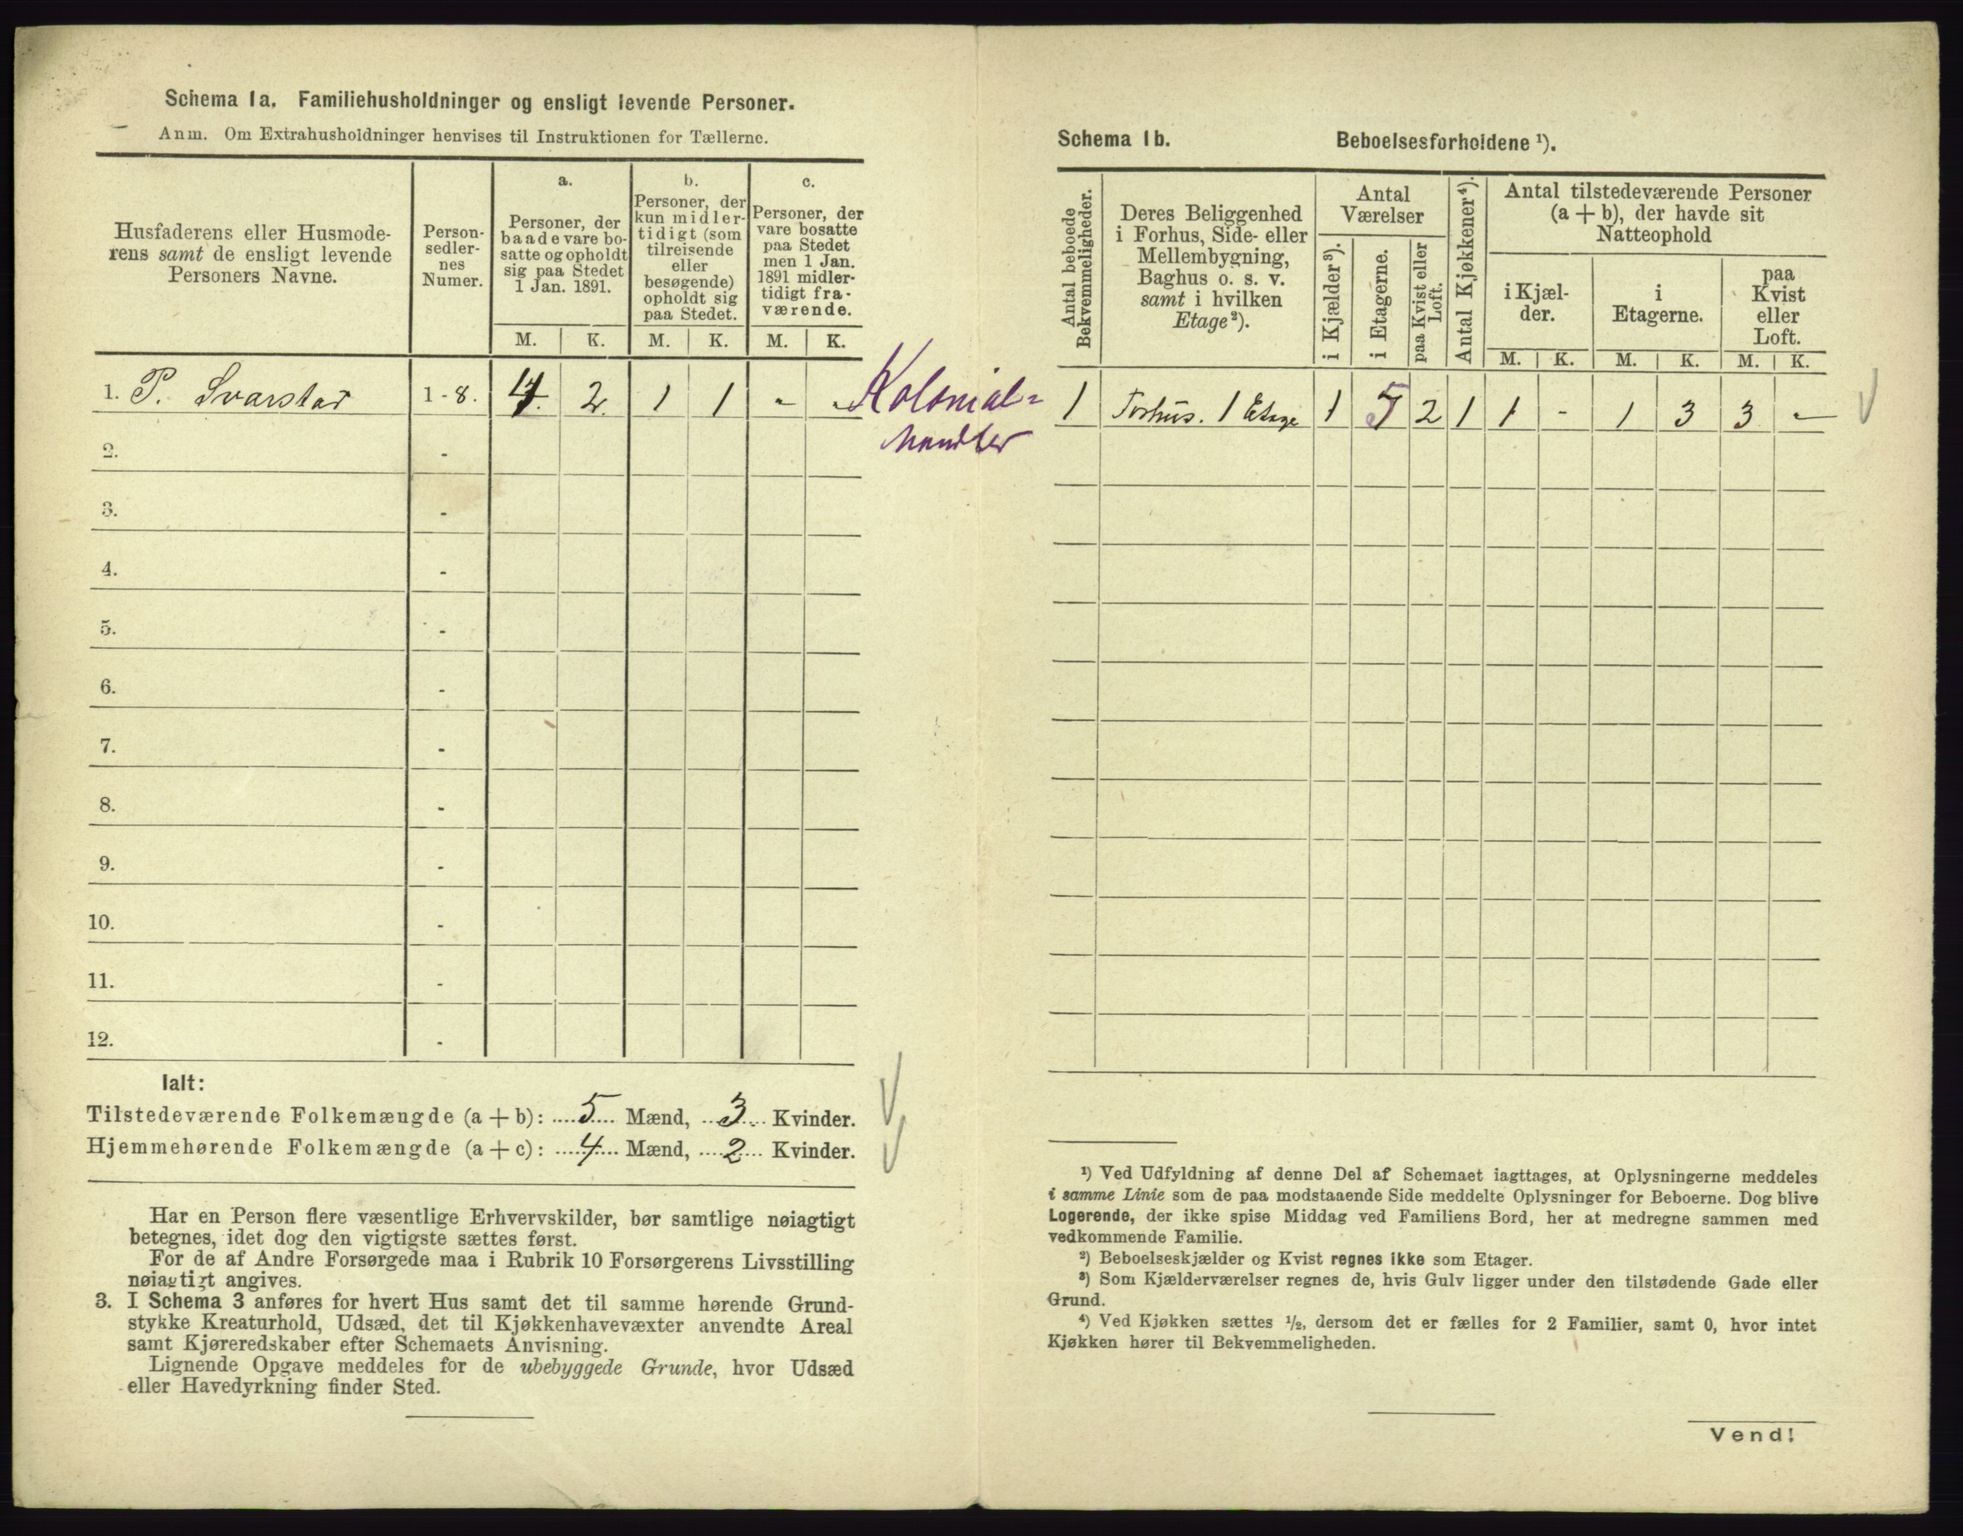 Schema 1a. Familiehusholdninger og ensligt levende Personer.
Anm. Om Extrahusholdninger henvises til Instruktionen for Tællerne.
Husfaderens eller Husmode-
rens samt de ensligt levende
Personers Navne.
Person-
sedler-
nes
Numer.
a.
Personer, der
baade vare bo-
satte og opholdt
sig paa Stedet
1 Jan. 1891.
b.
Personer, der
kun midler-
tidigt (som
tilreisende
eller
besøgende)
opholdt sig
paa Stedet.
c.
Personer, der
vare bosatte
paa Stedet
men 1 Jan.
1891 midler-
tidigt fra-
værende.
M. K. M. K. M. K.
1. P. Svarstad 1-8. 4. 2. 1 1 - - Kolonial=
handler
2. -
3. -
4. -
5. -
6. -
7. -
8. -
9. -
10. -
11. -
12. -
Ialt:
Tilstedeværende Folkemængde (a + b): 5 Mænd, 3 Kvinder.
Hjemmehørende Folkemængde (a + c): 4 Mænd, 2 Kvinder.
Har en Person flere væsentlige Erhvervskilder, bør samtlige nøiagtigt
betegnes, idet dog den vigtigste sættes først.
For de af Andre Forsørgede maa i Rubrik 10 Forsørgerens Livsstilling
nøiagtigt angives.
3. I Schema 3 anføres for hvert Hus samt det til samme hørende Grund-
stykke Kreaturhold, Udsæd, det til Kjøkkenhavevæxter anvendte Areal
samt Kjøreredskaber efter Schemaets Anvisning.
Lignende Opgave meddeles for de ubebyggede Grunde, hvor Udsæd
eller Havedyrkning finder Sted.
Schema 1b. Beboelsesforholdene ¹).
Antal beboede
Bekvemmeligheder.
Deres Beliggenhed
i Forhus, Side- eller
Mellembygning,
Baghus o. s. v.
samt i hvilken
Etage²).
Antal
Værelser
i Kjælder³).
i Etagerne.
paa Kvist eller
Loft.
Antal Kjøkkener⁴).
Antal tilstedeværende Personer
(a + b), der havde sit
Natteophold
i Kjæl-
der.
i
Etagerne.
paa
Kvist
eller
Loft.
M. K. M. K. M. K.
1 Forhus. 1 Etage 1 5 2 1 1 - 1 3 3 -
¹) Ved Udfyldning af denne Del af Schemaet iagttages, at Oplysningerne meddeles
i samme Linie som de paa modstaaende Side meddelte Oplysninger for Beboerne. Dog blive
Logerende, der ikke spise Middag ved Familiens Bord, her at medregne sammen med
vedkommende Familie.
²) Beboelseskjælder og Kvist regnes ikke som Etager.
³) Som Kjælderværelser regnes de, hvis Gulv ligger under den tilstødende Gade eller
Grund.
⁴) Ved Kjøkken sættes ½, dersom det er fælles for 2 Familier, samt 0, hvor intet
Kjøkken hører til Bekvemmeligheden.
Vend!